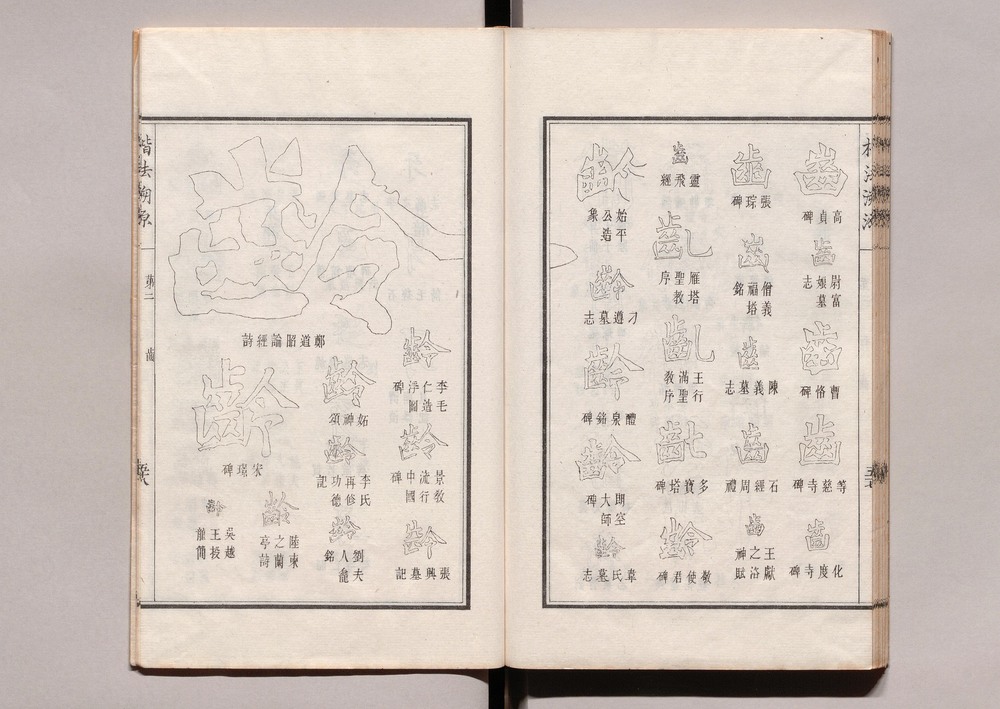 齒
高貞碑
齒
尉富娘墓志
齒
曹恪碑
齒
等慈寺碑
齒
化度寺碑
齒
張琮碑
齒
僧義福塔銘
齒
陳義墓志
齒
石經周禮
齒
王獻之洛神賦
齒
靈飛經
齔
雁塔聖教序
齔
王行滿聖教序
齔
多寶塔碑
齡
敬使君碑
齡
始平公造象
齡
刁遵墓志
齡
醴泉銘碑
齡
朗空大師碑
齡
韋氏墓志
齡
鄭道昭論經詩
齡
李毛仁造浮圖碑
齡
景教流行中國碑
齡
張興墓記
齡
妬神頌
齡
李氏再修功德記
齡
劉夫人龕銘
齡
宋璟碑
齡
陸柬之蘭亭詩
齡
吳越王投龍簡
楷法溯源
第二
齒